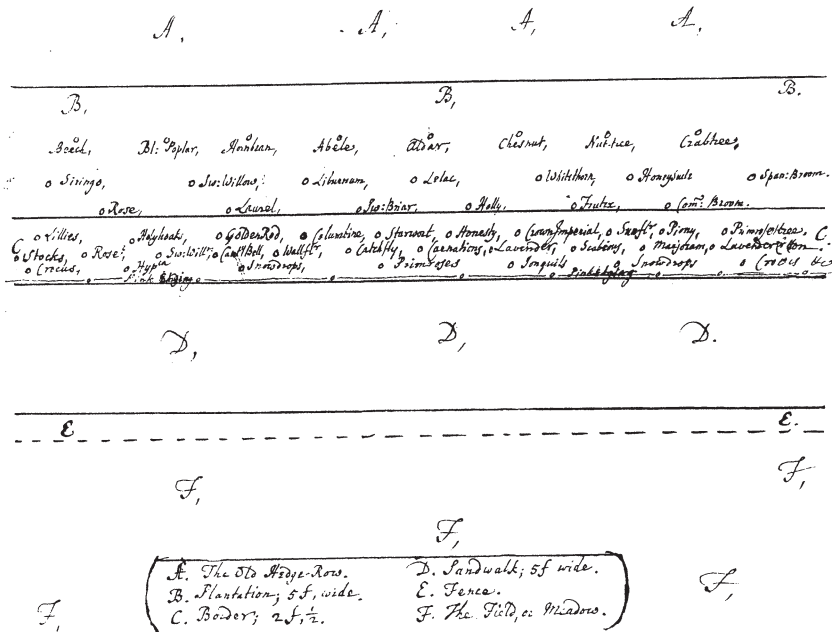 A, A, A, A,
B, B, B.
Beech, Bl: Poplar, Hornbean, Abele, Aldar, Chesnut, Nut-tree, Crabtree,
Siringo, Sw: Willow, Liburnum, Lelac, Whitethorn, Honysucle Span: Broom.
Rose, Laurel, Sw: Briar, Holly, Frutex, Com: Broom.
C Lillies, Holyhoaks, Golden Rod, Columbine, Starwort, Honesty, Crown Imperial, Sunfl:r, Piony, Primrosetree. C.
Stocks, Rose Sw: Will:m, Cant: Bell, Wallfl:r, Catchfly, Carnations, Lavender, Scabious, Marjoram, Lavender
Crocus, Snowdrops, Primroses Jonquils Snowdrops Crocus &c
Pink Edging Pink Edging
D, D, D.
E E.
F, F,
F,
A. The Old Hedge-Row. D. Sandwalk; 5f wide.
B. Plantation; 5f, wide. E. Fence.
C. Border; 2f,½. F. The Field, or Meadow.
F, F,